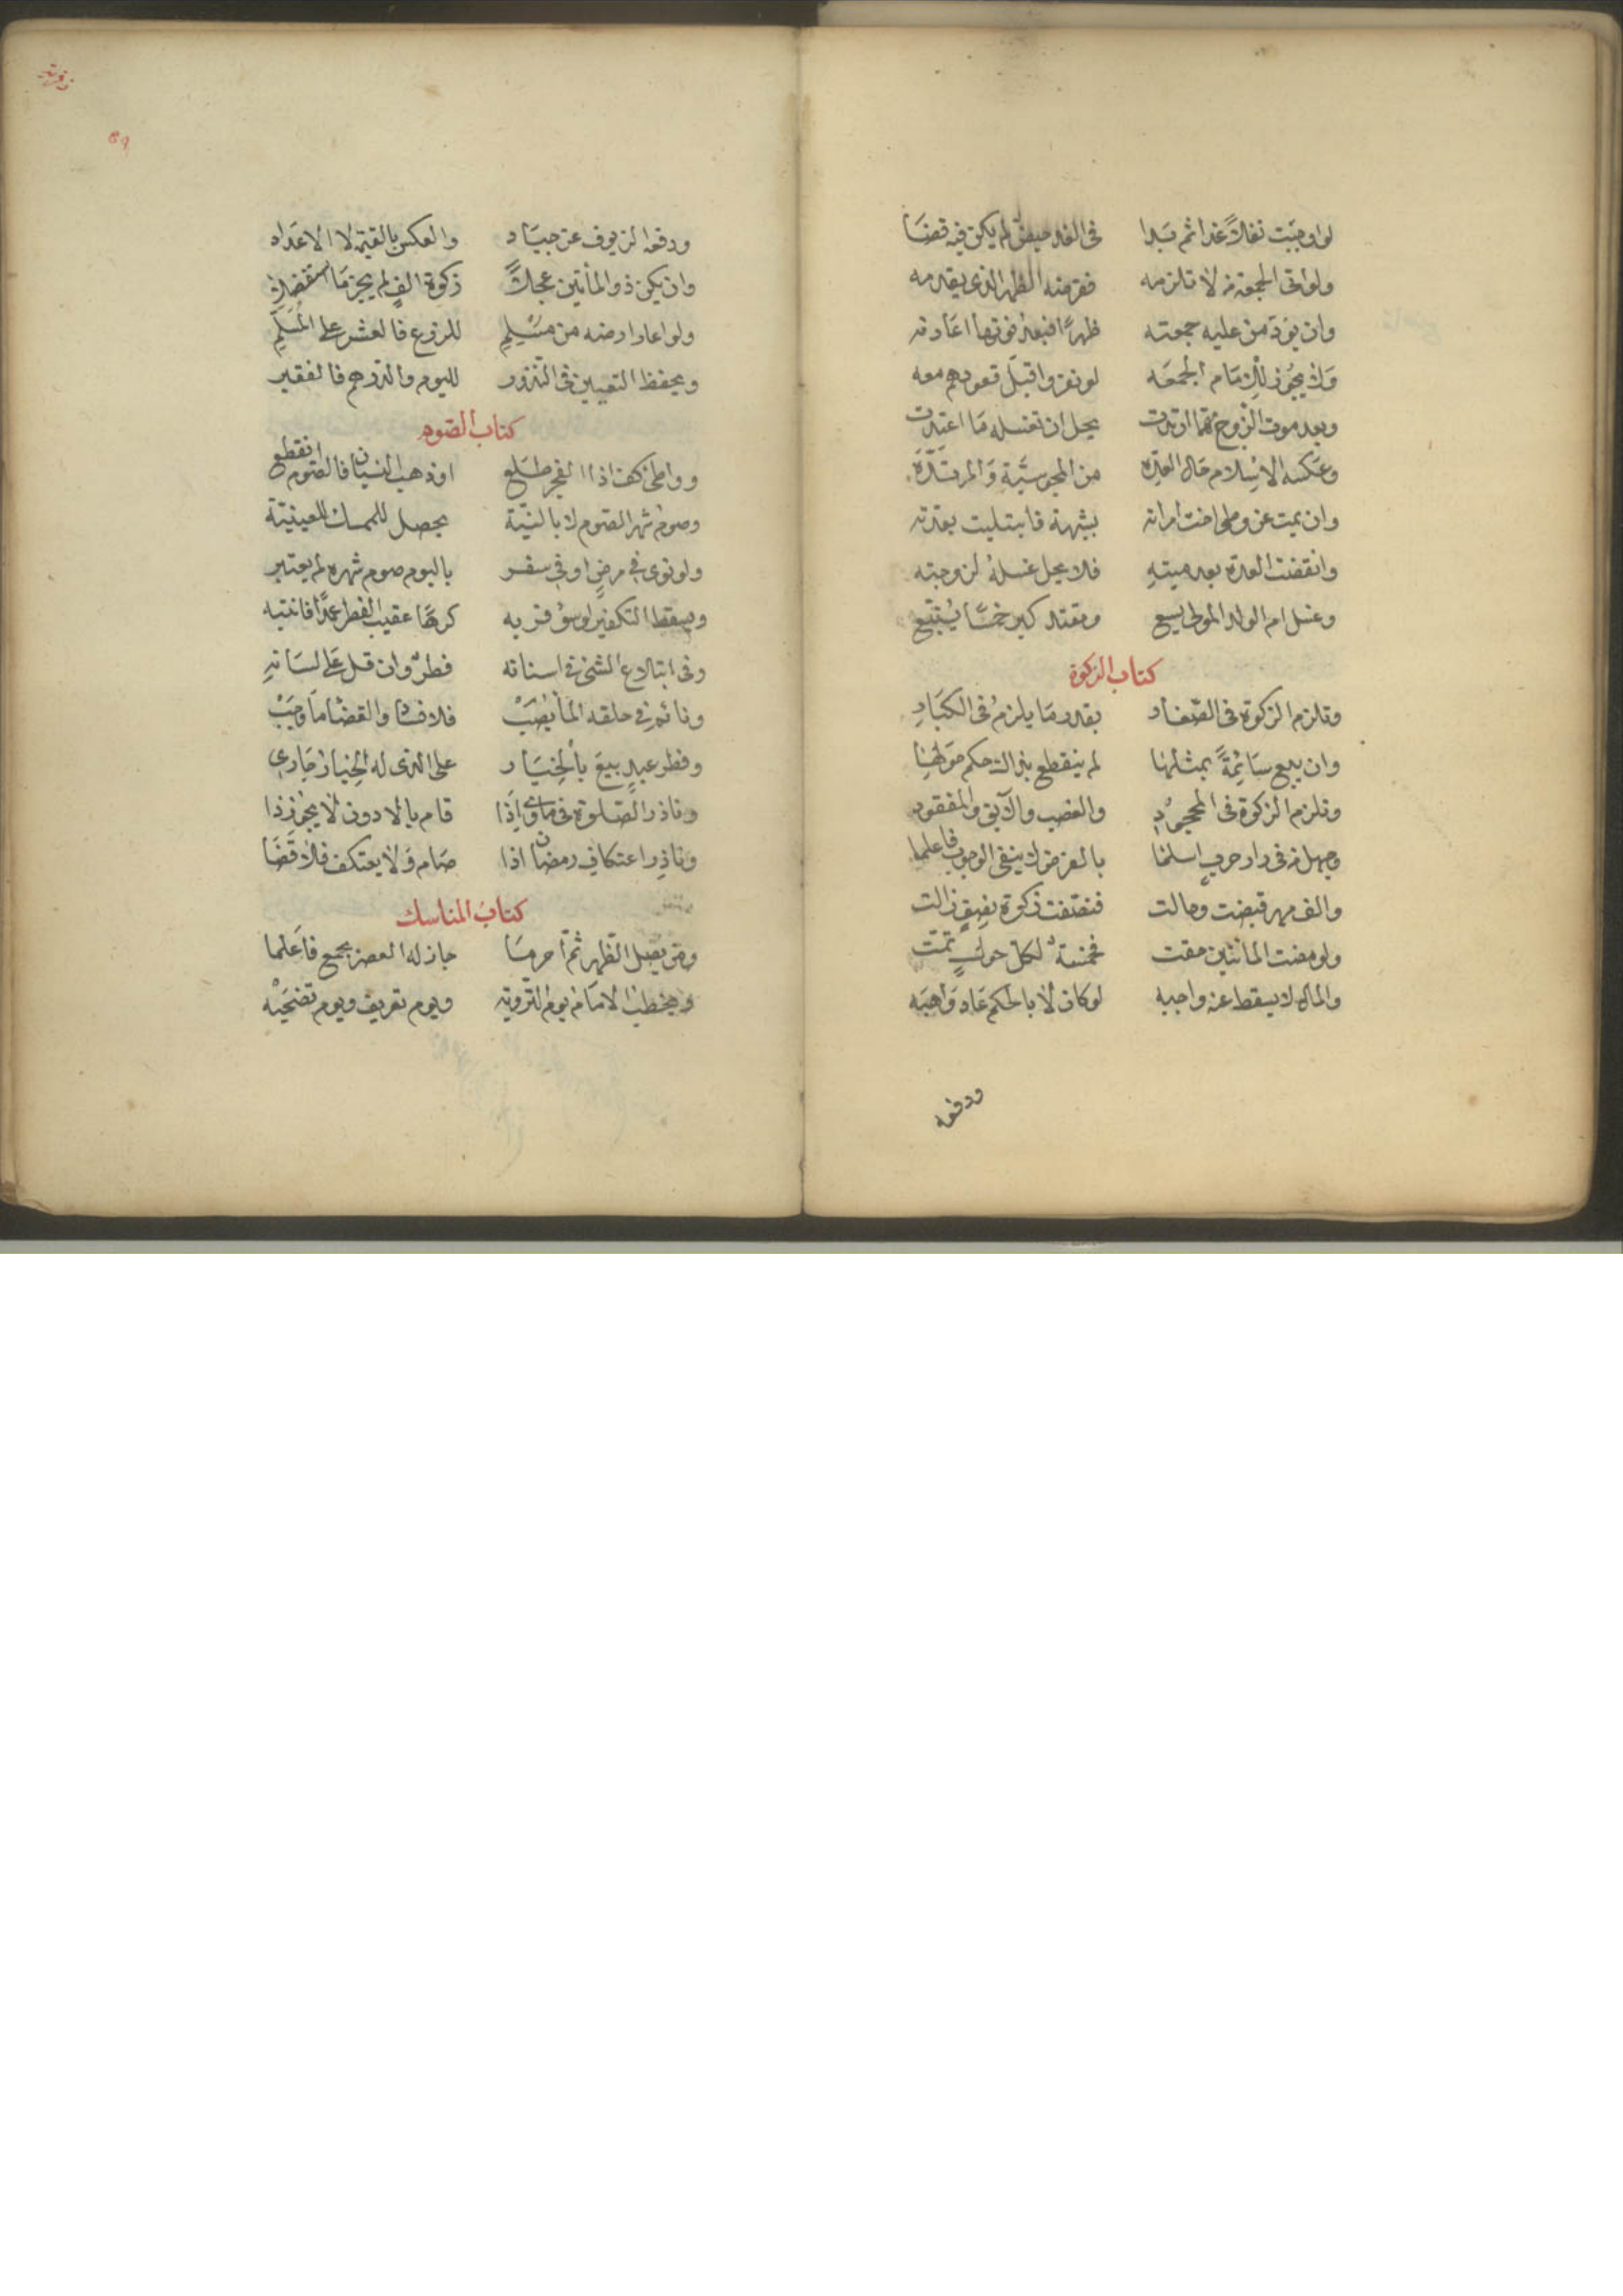 لو اوجبت نفلا غدا ثم بدا في الغد حيض لم يكن فيه قضا
ولو اتى الجمعة من لا تلزمه ففرضه الظهر الذي يقدمه
وان يؤد من عليه جمعته ظهرا فبعد فوتها اعادته
ولا يجوز للامام الجمعه لو نفروا قبل قعودهم معه
وبعد موت الزوج مهما ارتدت يحل ان تغسله ما اعتدت
وعكسه الاسلام حال العده من المجوسية والمرتده
وان يمت عن وطئ اخت امراته بشبهة فابتليت بعدته
وانقضت العدة بعد ميته فلا يحل غسله لزوجته
وغسل ام الولد المولى يسع ومقتد كبر خمسا يتبع
كتاب الزكوة
وتلزم الزكوة في الصغار بقدر ما يلزم في الكبار
وان يبع سائمة بمثلها لم ينقطع بذاك حكم حولها
وتلزم الزكوة في المجحود والغصب والآبق والمفقود
وجهل من في دار حرب اسلما بالفرض لا ينفي الوجوب فاعلما
والف مهر قبضت وحالت فنصفت زكوة نصف زالت
ولو مضت المائتين حقت فخمسة لكل حول تمت
والمال لا يسقط عنه واجبه لو كان لا بالحكم عاد واهبه
ودفعه
ودفعه الزيوف عن جياد والعكس بالقيمة لا الاعداد
وان يكن ذو المأتين عجلا زكوة الف لم يجز ما استفضلا
ولو اعار ارضه من مسلم للزرع فالعشر على المسلم
ويحفظ التعيين في النذور لليوم والدرهم فالفقير
كتاب الصوم
وواطئ كف اذا الفجر طلع او ذهب النسيان فالصوم انقطع
وصوم شهر الصوم لا بالنية يحصل للممساك للعينية
ولو نوى في مرض او في سفر باليوم صوم شهره لم يعتبر
ويسقط التكفير لو سوفر به كرها عقيب الفطر عمدا فانتبه
وفي ابتلاع الشئ في اسنانه فطر وان قل على لسانه
ونائم في حلقه الما يصب فلا فساد والقضا ما وجب
وفطر عبد بيع بالخيار على الذي له الخيار جاري
وناذر الصلوة في ماوى اذا قام بالادون لا يجوز ذا
وناذر اعتكاف رمضان اذا صام ولا يعتكف فلا قضا
كتاب المناسك
ومن يصل الظهر ثم احرما جاز له العصر بجمع فاعلما
ويخطب الامام يوم التروية ويوم تعريف ويوم تضحيه